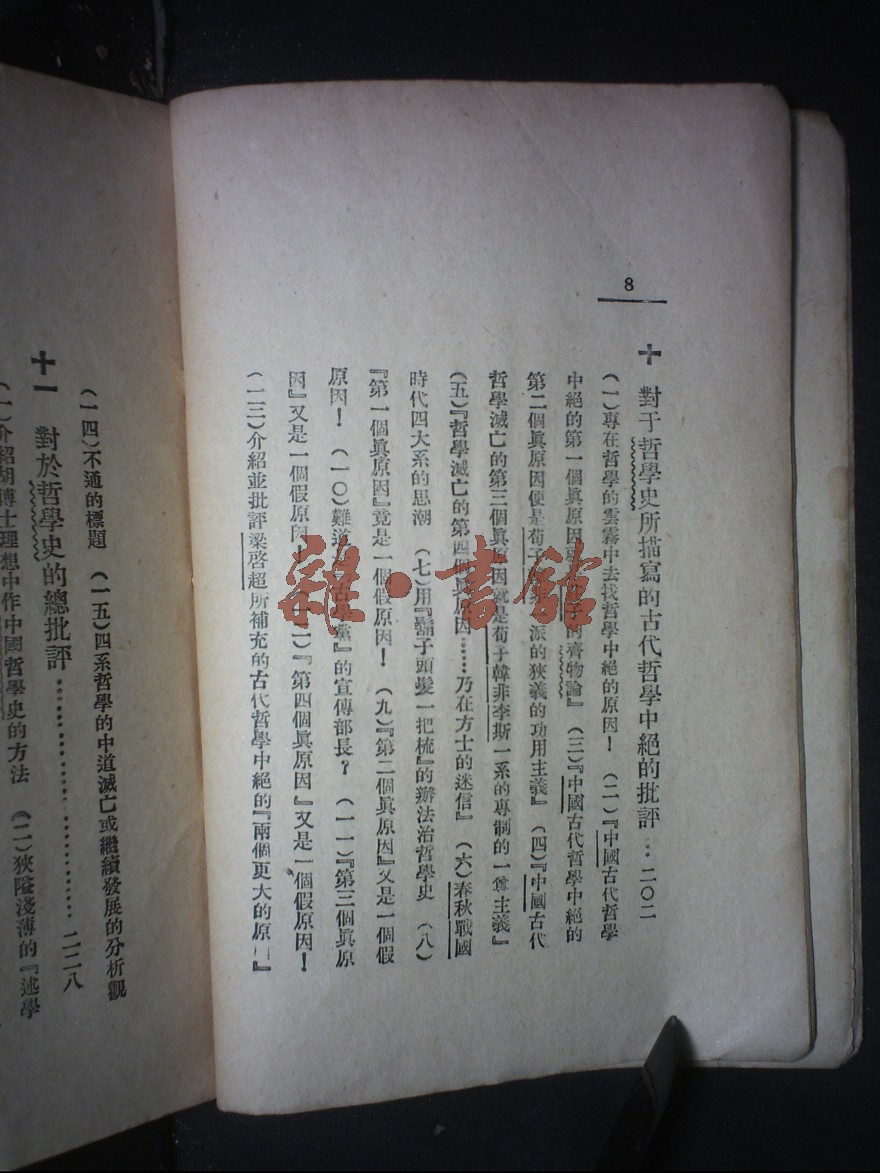 8
十 對于哲學史所描寫的古代哲學中絕的批評…二〇二
(一)專在哲學的雲霧中去找哲學中絕的原因! (二)『中國古代哲學
中絕的第一個眞原因 的齊物論』 (三)『中國古代哲學中絕的
第二個眞原因便是荀子 派的狹義的功用主義』 (四)『中國古代
哲學滅亡的第三個眞原因就是荀子韓非李斯一系的專制的一尊主義』
(五)『哲學滅亡的第四個眞原因……乃在方士的迷信』 (六)春秋戰國
時代四大系的思潮 (七)用『鬍子頭髮一把梳』的辦法治哲學史 (八)
『第一個眞原因』竟是一個假原因! (九)『第二個眞原因』又是一個假
原因! (一〇)難道 古學黨』的宣傳部長? (一一)『第三個眞原
因』又是一個假原因! (一二)『第四個眞原因』又是一個假原因!
(一三)介紹並批評梁啓超所補充的古代哲學中絕的『兩個更大的原 』
(一四)不通的標題 (一五)四系哲學的中道滅亡或繼續發展的分析觀
十一 對於哲學史的總批評……………………二二八
(一)介紹胡博士理想中作中國哲學史的方法 (二)狹隘淺薄的『述學
雜·書館